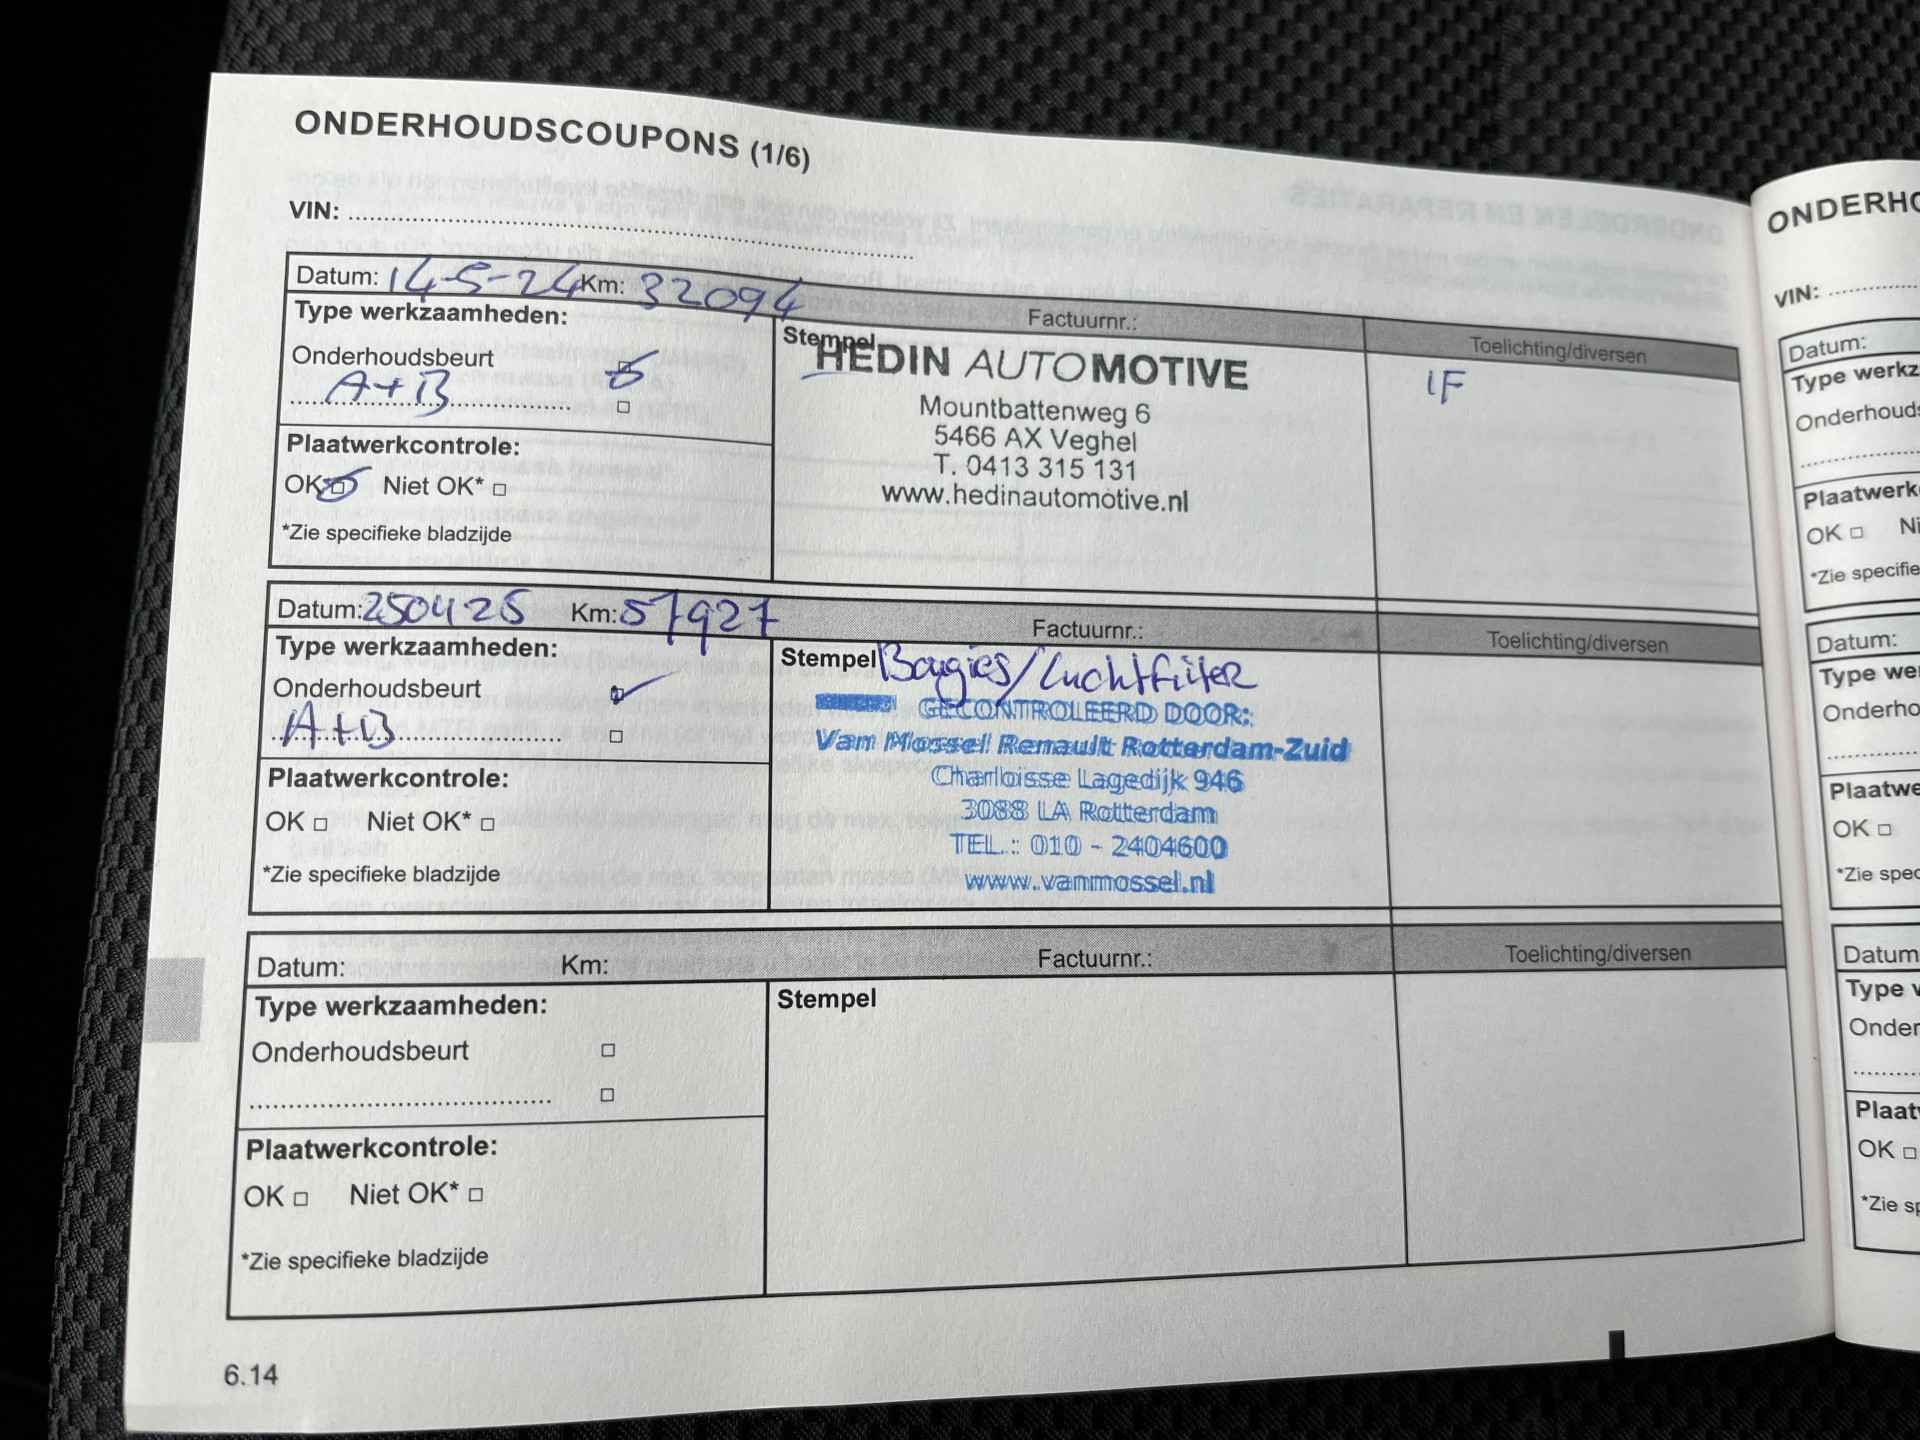 ONDERHOUDSCOUPONS (1/6)
VIN:
Datum: 14-5-24 Km: 32094 Factuurnr.: Toelichting/diversen
Type werkzaamheden:
Stempel
Onderhoudsbeurt
A+B
HEDIN AUTOMOTIVE
Mountbattenweg 6
5466 AX Veghel
T. 0413 315 131
www.hedinautomotive.nl
Plaatwerkcontrole:
OK Niet OK*
*Zie specifieke bladzijde
Datum: 250425 Km: 57927 Factuurnr.: Toelichting/diversen
Type werkzaamheden:
Stempel Bougies/Luchtfilter
Onderhoudsbeurt
A+B
GECONTROLEERD DOOR:
Van Mossel Renault Rotterdam-Zuid
Charloisse Lagedijk 946
3088 LA Rotterdam
TEL.: 010 - 2404600
www.vanmossel.nl
Plaatwerkcontrole:
OK Niet OK*
*Zie specifieke bladzijde
Datum: Km: Factuurnr.: Toelichting/diversen
Type werkzaamheden:
Stempel
Onderhoudsbeurt
Plaatwerkcontrole:
OK Niet OK*
*Zie specifieke bladzijde
6.14
ONDERHO
VIN:
Datum:
Type werkz
Onderhouds
Plaatwerk
OK Ni
*Zie specifie
Datum:
Type wer
Onderho
Plaatwe
OK
*Zie spec
Datum
Type w
Onder
Plaat
OK
*Zie sp